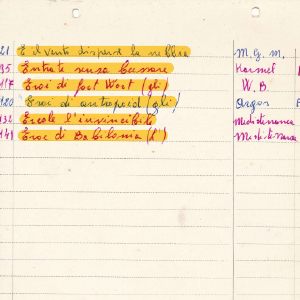 21 E il vento disperse la nebbia M.G.M.
35 Entrate senza bussare Karmel
117 Eroi di Fort Wort (gli) W.B.
120 Eroi di antrapoid (gli) Argos
132 Ercole l'invincibile Mediterranea
141 Eroe di Babilonia (l') Mediterranea